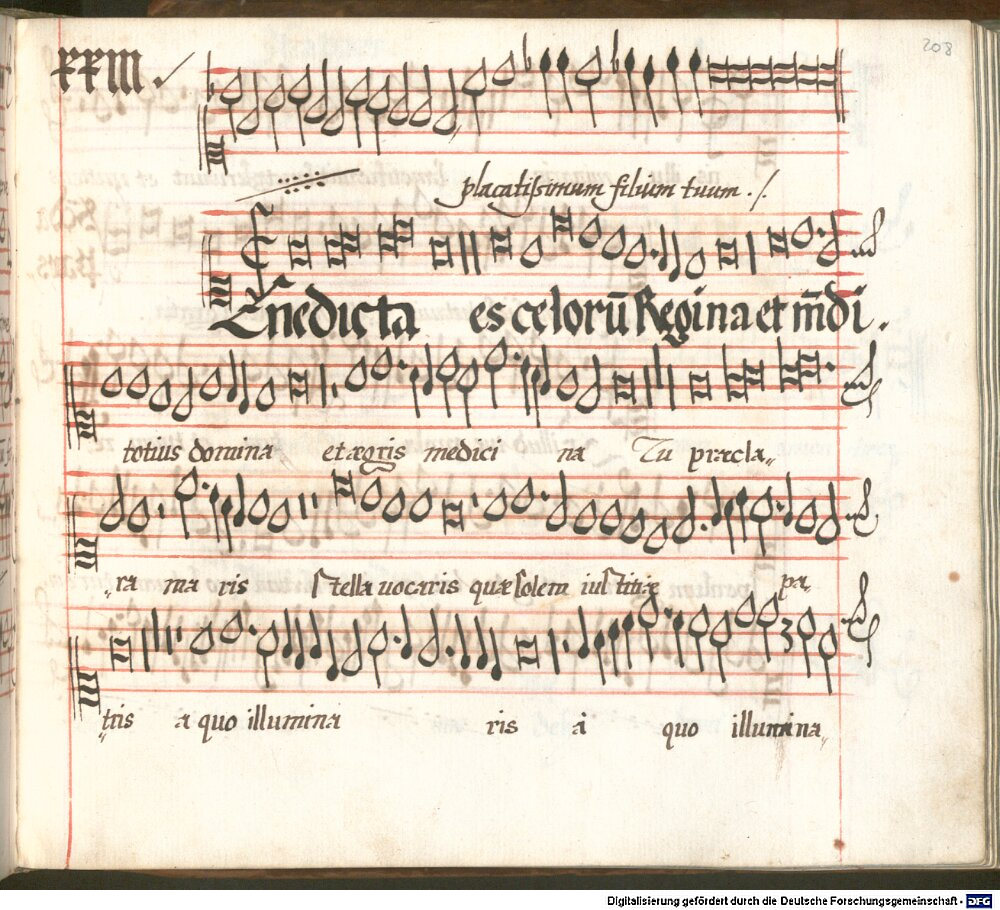 208
XXIII
placatissimum filium tuum ./.
Benedicta es celorũ Regina et m̃di .
totius domina et ægris medici na Tu præcla„
„ra ma ris stella uocaris quæ solem iustitiæ pa„
„tris a quo illumina ris a quo illumina„
Digitalisierung gefördert durch die Deutsche Forschungsgemeinschaft - DFG